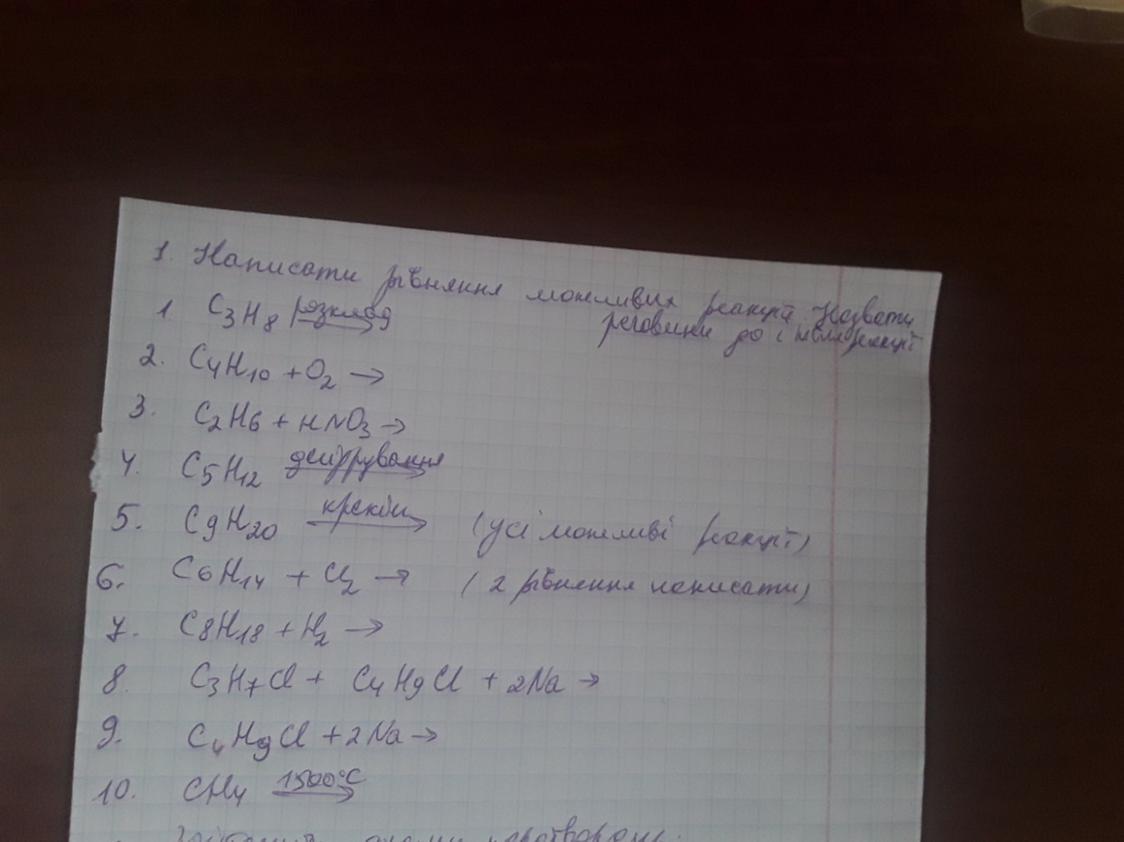 1. Написати рівняння можливих реакції. Назвати
речовини до і після реакції
1 C3H8 розклад
2. C4H10 + O2 →
3. C2H6 + HNO3 →
4. C5H12 дегідрування
5. C9H20 крекінг (усі можливі реакції)
6. C6H14 + Cl2 → (2 рівняння написати)
7. C8H18 + H2 →
8. C3H7Cl + C4H9Cl + 2Na →
9. C4H9Cl + 2Na →
10. CH4 1500°C